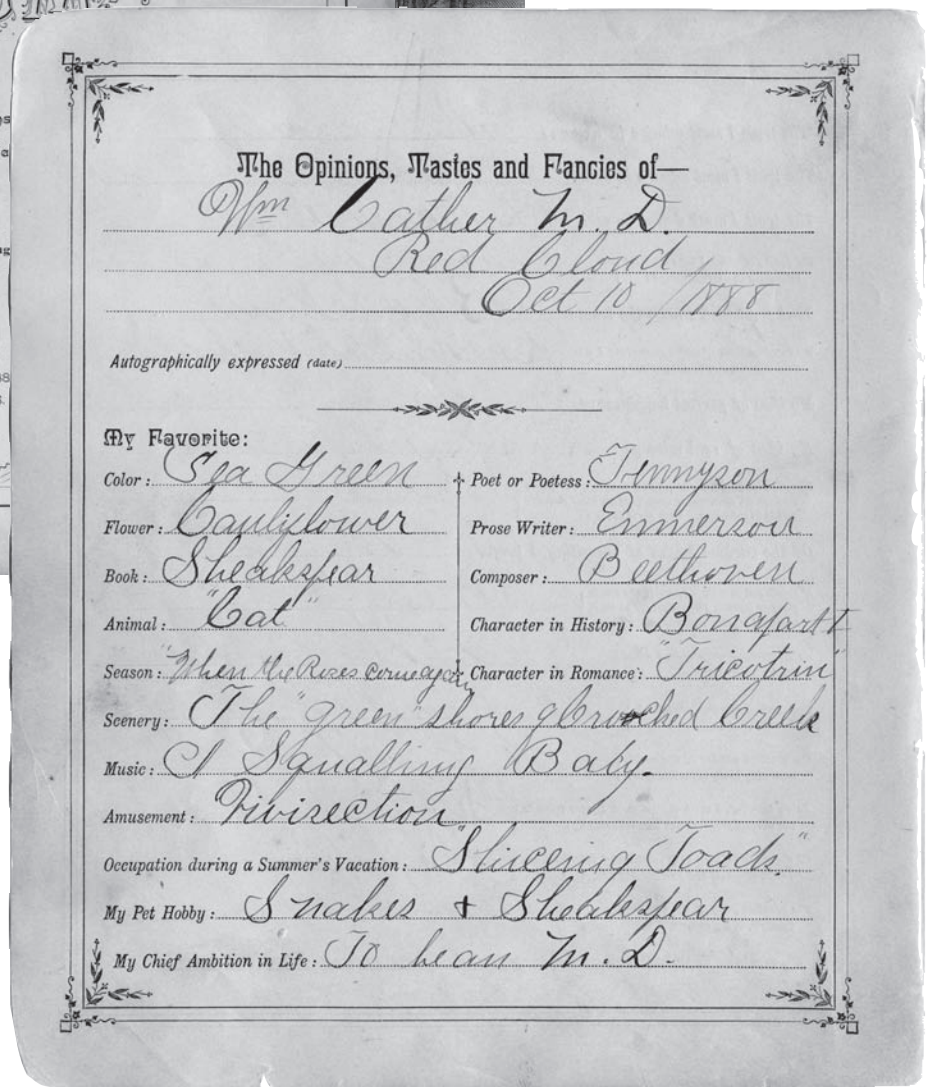 The Opinions, Tastes and Fancies of—
Wm Cather M. D.
Red Cloud
Oct 10 / 1888
Autographically expressed (date)
My Favorite:
Color: Sea Green
Flower: Cauliflower
Book: Sheakspear
Animal: "Cat"
Season: "When the Roses come again
Poet or Poetess: Tennyson
Prose Writer: Emmerson
Composer: Beethoven
Character in History: Bonapart
Character in Romance: "Tricotrin"
Scenery: The "green" shores of Crooked Creek
Music: A Squalling Baby.
Amusement: Vivisection
Occupation during a Summer's Vacation: "Sliceing Toads."
My Pet Hobby: Snakes & Sheakspear
My Chief Ambition in Life: To be an M. D.